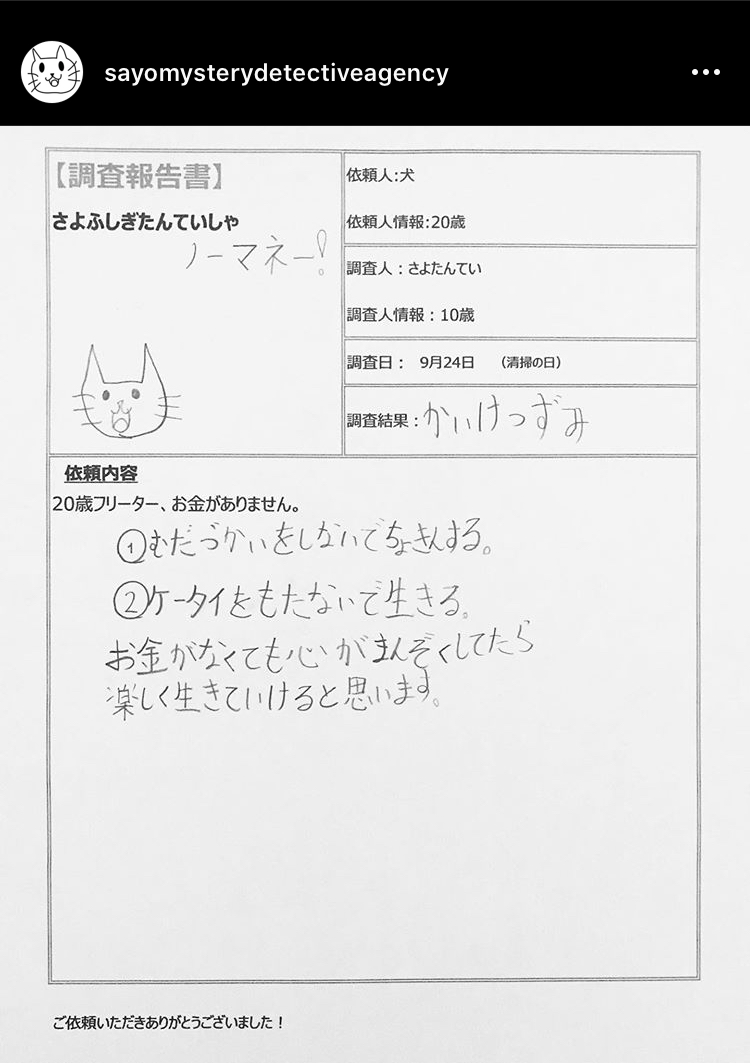 sayomysterydetectiveagency
【調査報告書】
さよふしぎたんていしゃ
ノーマネー!
依頼人:犬
依頼人情報:20歳
調査人：さよたんてい
調査人情報：10歳
調査日： 9月24日 （清掃の日）
調査結果：かいけつずみ
依頼内容
20歳フリーター、お金がありません。
①むだづかいをしないでちょきんする。
②ケータイをもたないで生きる。
お金がなくても心がまんぞくしてたら
楽しく生きていけると思います。
ご依頼いただきありがとうございました！